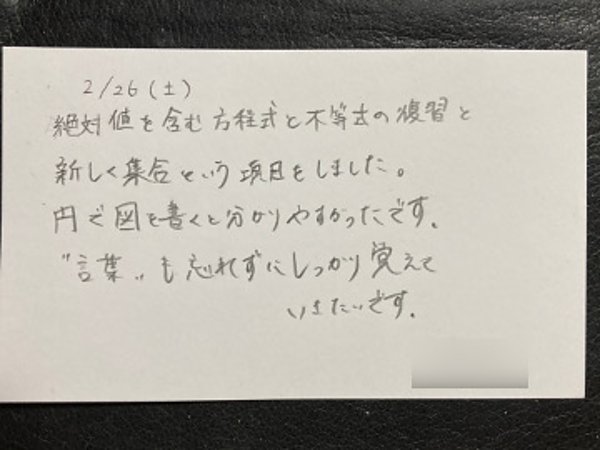 2/26(土)
絶対値を含む方程式と不等式の復習と
新しく集合という項目をしました。
円で図を書くと分かりやすかったです。
"言葉"も忘れずにしっかり覚えて
いきたいです。